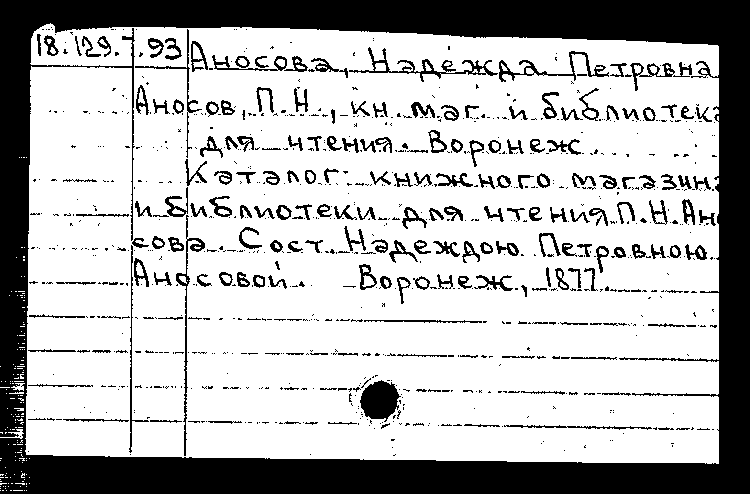 18.129.7.93 Аносова, Надежда Петровна
Аносов, П.Н., кн. маг. и библиотека
для чтения. Воронеж.
Каталог книжного магазина
и библиотеки для чтения П.Н.Ано
сова. Сост. Надеждою Петровною
Аносовой. Воронеж, 1877.